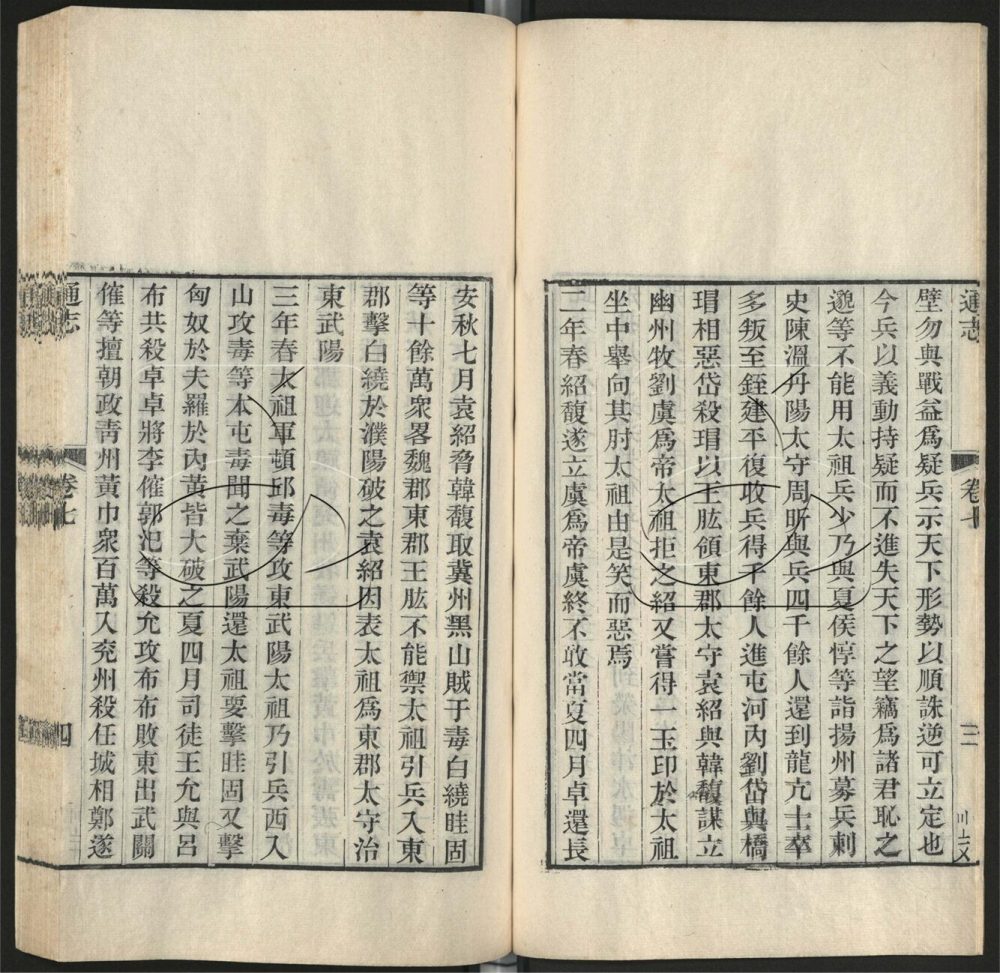 通志
卷七
三
壁勿與戰益爲疑兵示天下形勢以順誅逆可立定也
今兵以義動持疑而不進失天下之望竊爲諸君恥之
邈等不能用太祖兵少乃與夏侯惇等詣揚州募兵刺
史陳溫丹陽太守周昕與兵四千餘人還到龍亢士卒
多叛至銍建平復收兵得千餘人進屯河內劉岱與橋
瑁相惡岱殺瑁以王肱領東郡太守袁紹與韓馥謀立
幽州牧劉虞爲帝太祖拒之紹又嘗得一玉印於太祖
坐中舉向其肘太祖由是笑而惡焉
二年春紹馥遂立虞爲帝虞終不敢當夏四月卓還長
安秋七月袁紹脅韓馥取冀州黑山賊于毒白繞眭固
等十餘萬衆畧魏郡東郡王肱不能禦太祖引兵入東
郡擊白繞於濮陽破之袁紹因表太祖爲東郡太守治
東武陽
三年春太祖軍頓邱毒等攻東武陽太祖乃引兵西入
山攻毒等本屯毒聞之棄武陽還太祖要擊眭固又擊
匈奴於夫羅於內黃皆大破之夏四月司徒王允與呂
布共殺卓卓將李傕郭汜等殺允攻布布敗東出武關
傕等擅朝政青州黃巾衆百萬入兖州殺任城相鄭遂
通志
卷七
四